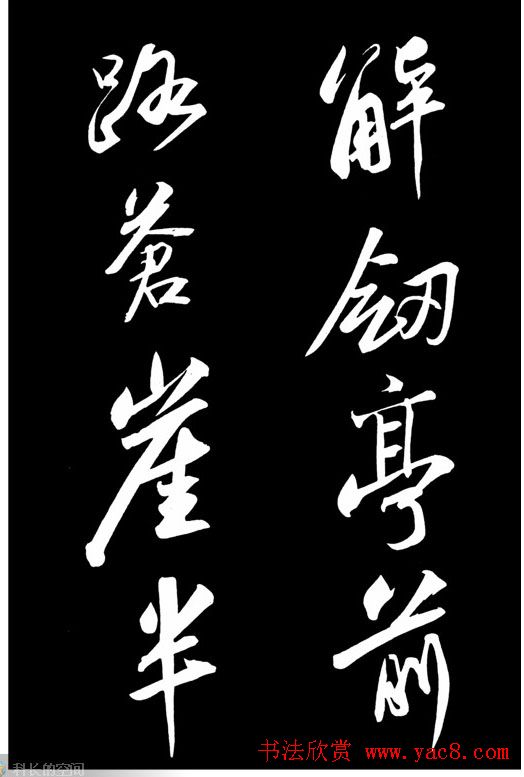 解劔亭前
路蒼崖半
书法欣赏 www.yac8.com
科长的空间